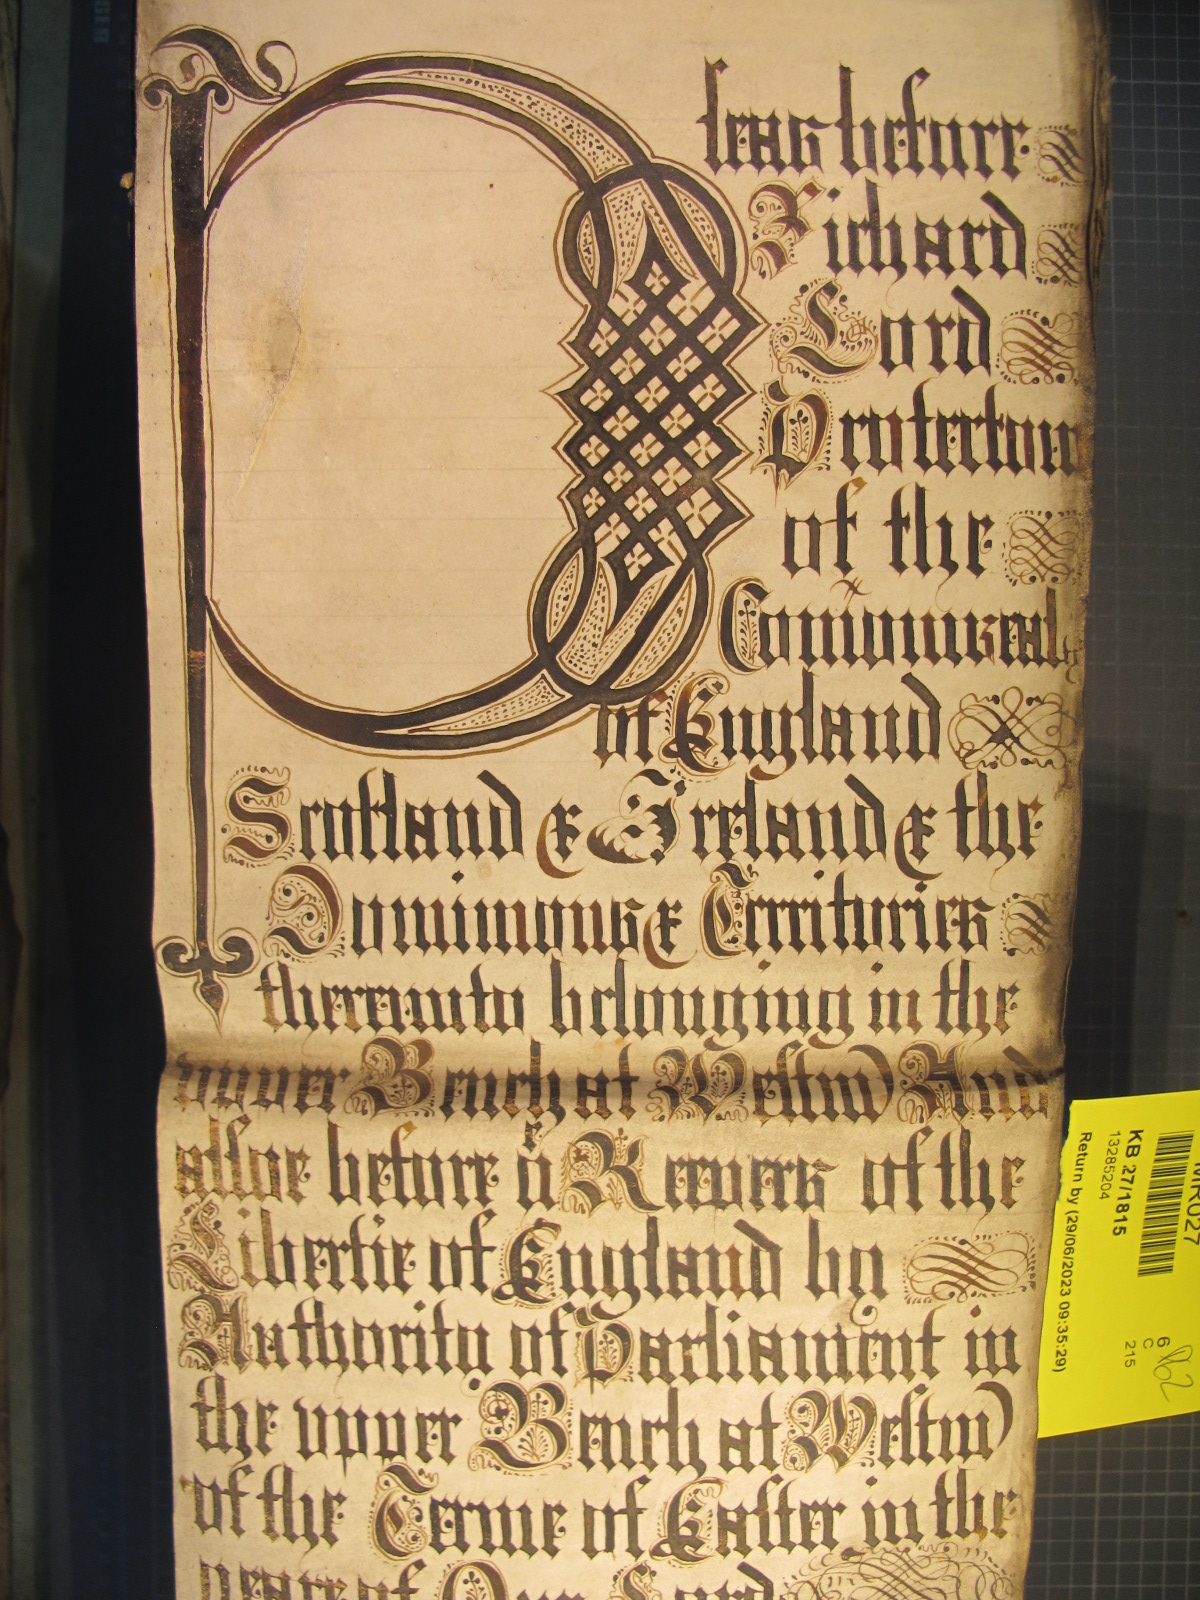 Pleas before
Richard
Lord
Protectour
of the
Com̄onweal
of England
Scotland & Ireland & the
Dominions & Territories
thereunto belonging in the
upper Bench at Westm̄ And
alsoe before ye Keepers of the
Libertie of England by
Authority of Parliament in
the upper Bench at Westm̄
of the Terme of Easter in the
yeare of Our Lord
MR027
KB 27/1815
13285204
Return by (29/06/2023 09:35:29)
6
C
215
962